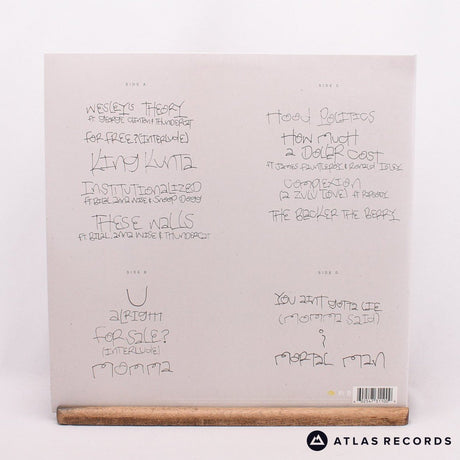 SIDE A
WESLEY'S THEORY
FT GEORGE CLINTON & THUNDERCAT
FOR FREE? (INTERLUDE)
KING KUNTA
INSTITUTIONALIZED
FT BILAL ANNA WISE & SNOOP DOGG
THESE WALLS
FT BILAL ANNA WISE & THUNDERCAT
SIDE B
U
alRIGHT
FOR SALE?
(INTERLUDE)
MOMMA
SIDE C
HOOD POLITICS
HOW MUCH
A DOLLAR COST
FT JAMES FAUNTLEROY & RONALD ISLEY
COMPLEXION
(A ZULU LOVE) FT RAPSODY
THE BLACKER THE BERRY
SIDE D
YOU AINT GOTTA LIE
(MOMMA SAID)
i
MORTAL MAN
ATLAS RECORDS